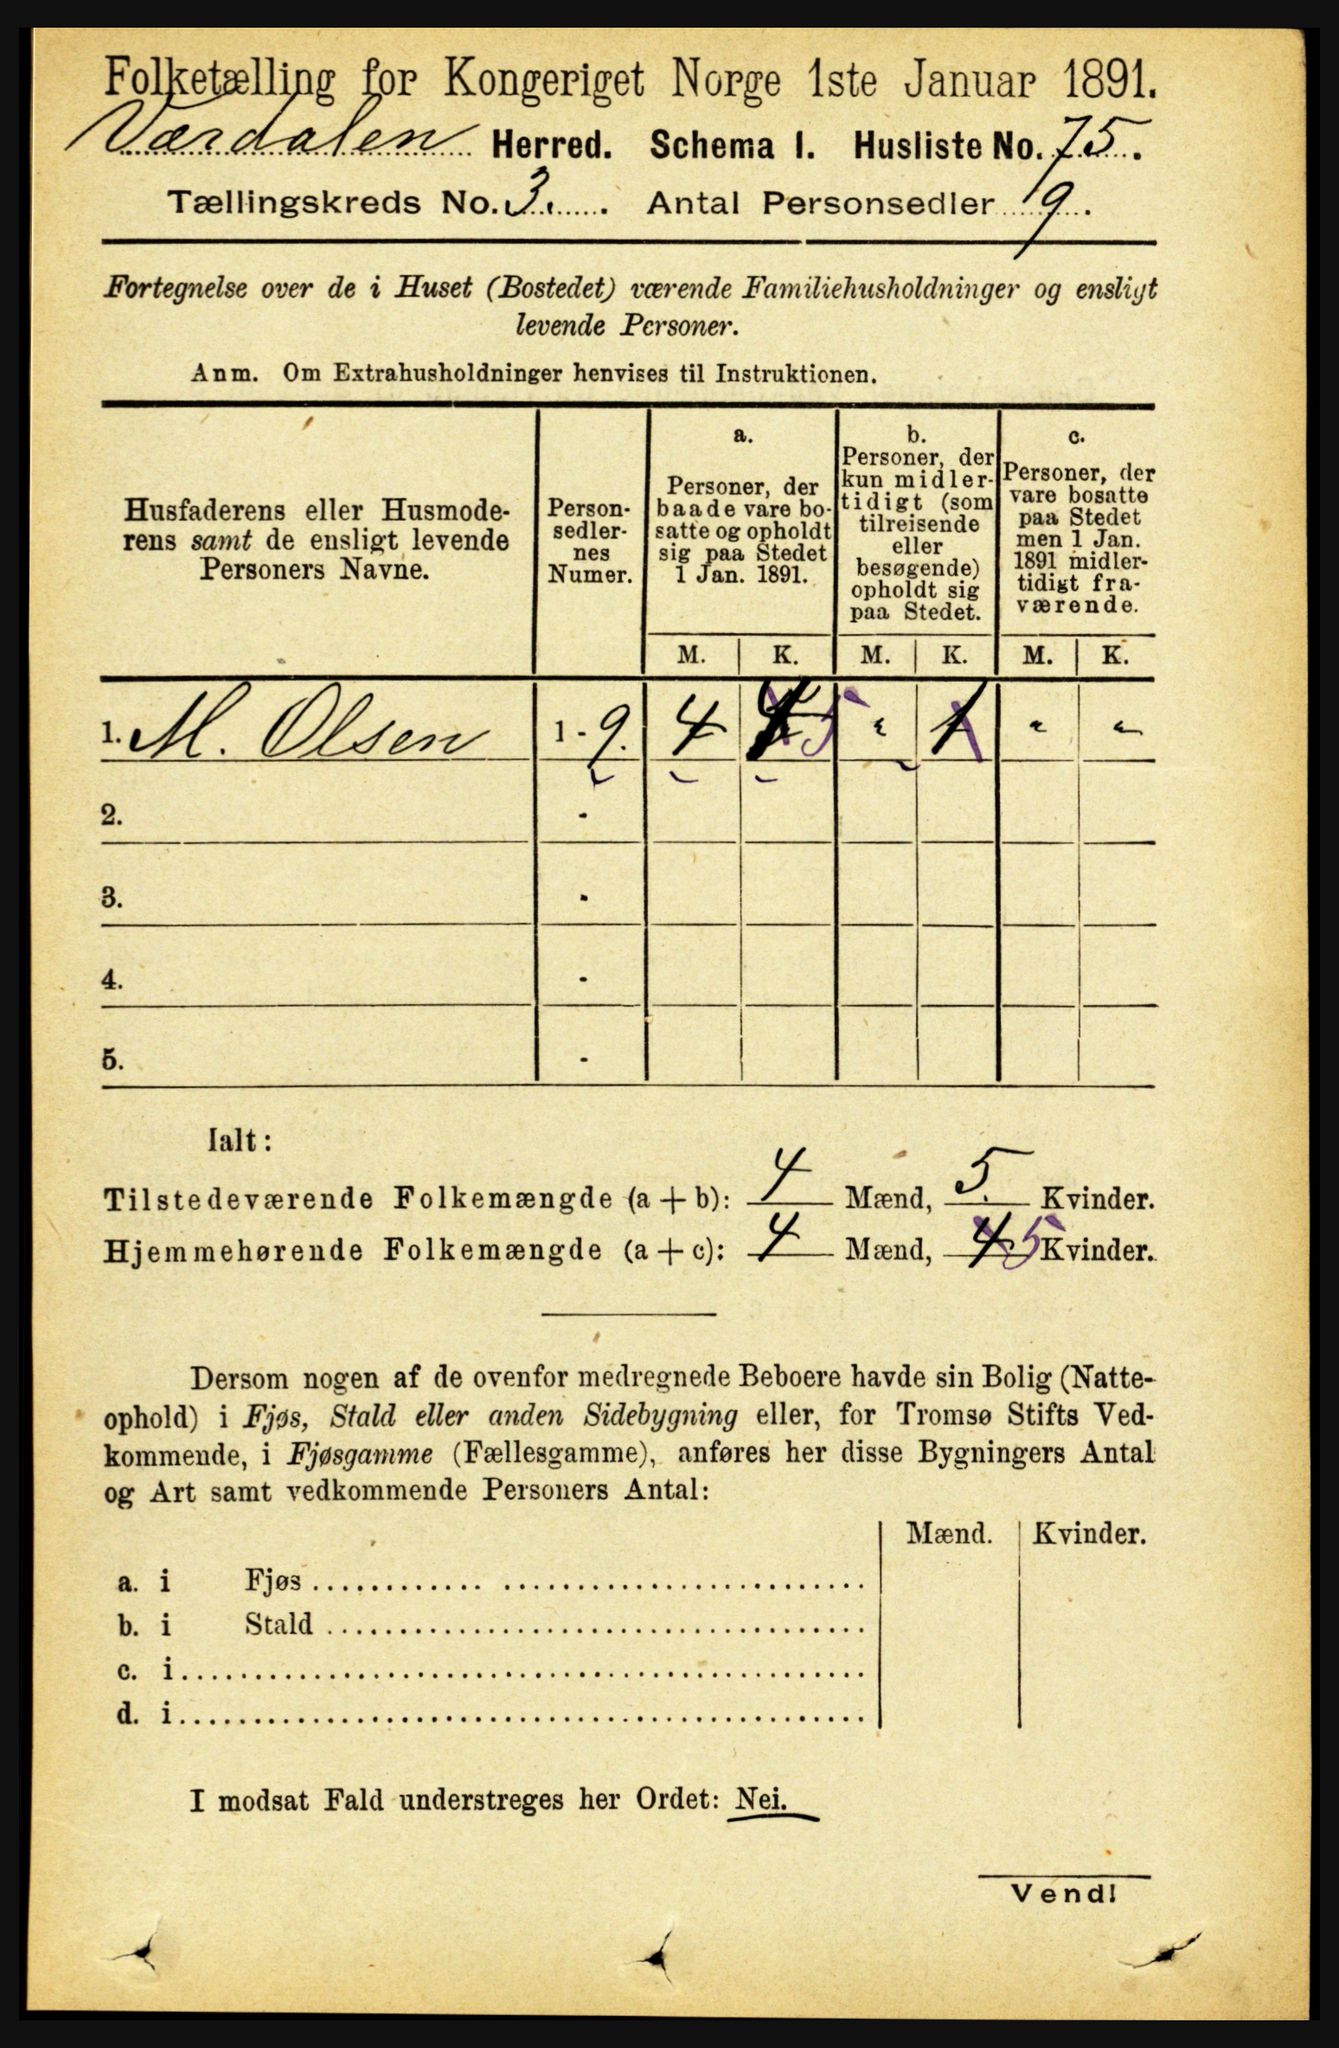 Folketælling for Kongeriget Norge 1ste Januar 1891.
Værdalen Herred. Schema I. Husliste No. 75.
Tællingskreds No. 3. Antal Personsedler 9.
Fortegnelse over de i Huset (Bostedet) værende Familiehusholdninger og ensligt
levende Personer.
Anm. Om Extrahusholdninger henvises til Instruktionen.
Husfaderens eller Husmode-
rens samt de ensligt levende
Personers Navne.
Person-
sedler-
nes
Numer.
a.
Personer, der
baade vare bo-
satte og opholdt
sig paa Stedet
1 Jan. 1891.
b.
Personer, der
kun midler-
tidigt (som
tilreisende
eller
besøgende)
opholdt sig
paa Stedet.
c.
Personer, der
vare bosatte
paa Stedet
men 1 Jan.
1891 midler-
tidigt fra-
værende.
M. K. M. K. M. K.
1. M. Olsen 1 - 9. 4 4 5 " 1 " "
2. -
3. -
4. -
5. -
Ialt:
Tilstedeværende Folkemængde (a + b): 4 Mænd, 5. Kvinder.
Hjemmehørende Folkemængde (a + c): 4 Mænd, 4 5 Kvinder.
Dersom nogen af de ovenfor medregnede Beboere havde sin Bolig (Natte-
ophold) i Fjøs, Stald eller anden Sidebygning eller, for Tromsø Stifts Ved-
kommende, i Fjøsgamme (Fællesgamme), anføres her disse Bygningers Antal
og Art samt vedkommende Personers Antal:
Mænd. Kvinder.
a. i Fjøs
b. i Stald
c. i
d. i
I modsat Fald understreges her Ordet: Nei.
Vend!